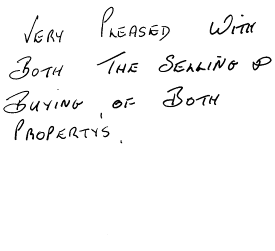 VERY PLEASED WITH
BOTH THE SELLING &
BUYING OF BOTH
PROPERTYS.